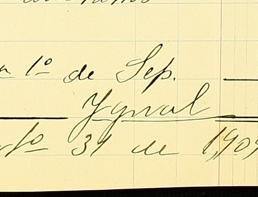 1º de Sep.
Ygual
31 de 1,909